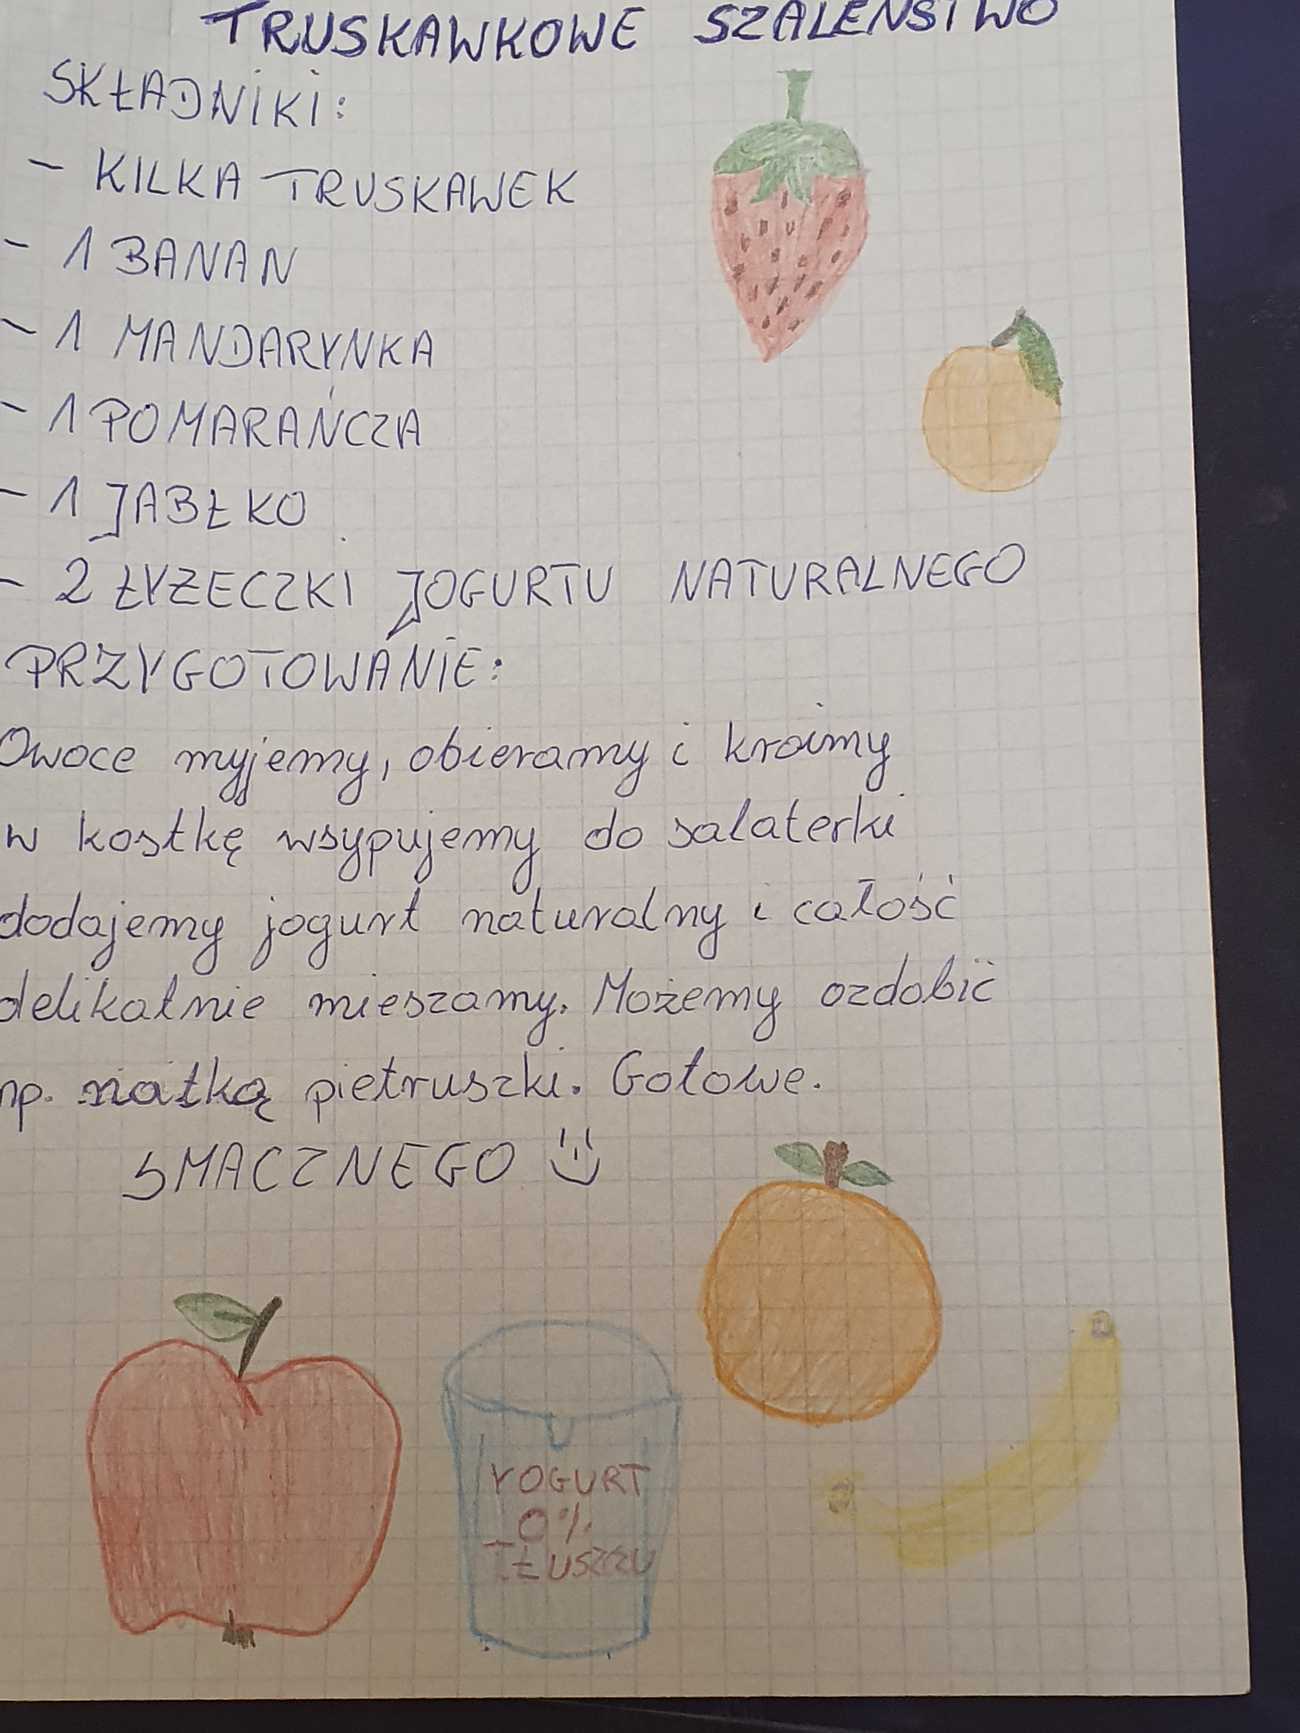 TRUSKAWKOWE SZALEŃSTWO
SKŁADNIKI:
- KILKA TRUSKAWEK
- 1 BANAN
- 1 MANDARYNKA
- 1 POMARAŃCZA
- 1 JABŁKO
- 2 ŁYŻECZKI JOGURTU NATURALNEGO
PRZYGOTOWANIE:
Owoce myjemy, obieramy i kroimy
w kostkę wsypujemy do salaterki
dodajemy jogurt naturalny i całość
delikatnie mieszamy. Możemy ozdobić
np. natką pietruszki. Gotowe.
SMACZNEGO
YOGURT
0%
TŁUSZZU